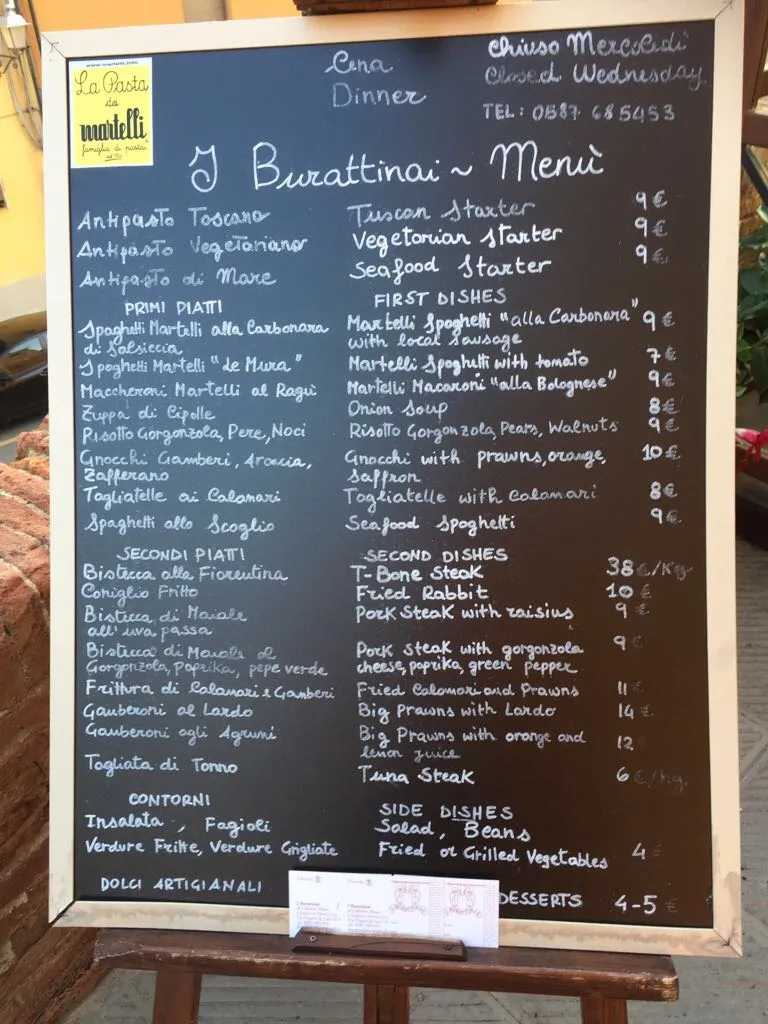 www.martelli.info
La Pasta
dei
martelli
famiglia di pastai
Cena
Dinner
Chiuso Mercoledì
Closed Wednesday
TEL: 0587 685453
I Burattinai ~ Menù
Antipasto Toscano Tuscan Starter 9 €
Antipasto Vegetariano Vegetarian Starter 9 €
Antipasto di Mare Seafood Starter 9 €
PRIMI PIATTI FIRST DISHES
Spaghetti Martelli alla Carbonara Martelli Spaghetti "alla Carbonara" 9 €
di Salsiccia with local sausage
Spaghetti Martelli "de Mura" Martelli Spaghetti with tomato 7 €
Maccheroni Martelli al Ragù Martelli Macaroni "alla Bolognese" 9 €
Zuppa di Cipolle Onion Soup 8 €
Risotto Gorgonzola, Pere, Noci Risotto Gorgonzola, Pears, Walnuts 9 €
Gnocchi Gamberi, Arancia, Gnocchi with prawns, orange, 10 €
Zafferano Saffron
Tagliatelle ai Calamari Tagliatelle with calamari 8 €
Spaghetti allo Scoglio Seafood Spaghetti 9 €
SECONDI PIATTI SECOND DISHES
Bistecca alla Fiorentina T-Bone Steak 38 €/Kg
Coniglio Fritto Fried Rabbit 10 €
Bistecca di Maiale Pork Steak with raisins 9 €
all'uva passa
Bistecca di Maiale al Pork Steak with gorgonzola 9 €
Gorgonzola, Paprika, pepe verde cheese, paprika, green pepper
Frittura di Calamari e Gamberi Fried Calamari and Prawns 11 €
Gamberoni al Lardo Big Prawns with Lardo 14 €
Gamberoni agli Agrumi Big Prawns with orange and 12
lemon juice
Tagliata di Tonno Tuna Steak 6 €/hg
CONTORNI SIDE DISHES
Insalata, Fagioli Salad, Beans
Verdure Fritte, Verdure Grigliate Fried or Grilled Vegetables 4 €
DOLCI ARTIGIANALI DESSERTS 4-5 €